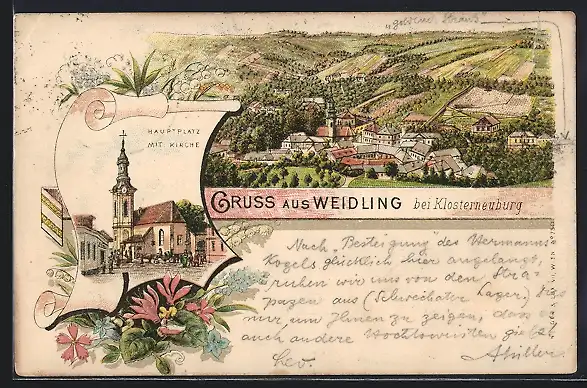 "goldener Strauß"
HAUPTPLATZ
MIT KIRCHE
GRUSS AUS WEIDLING bei Klosterneuburg
Nach "Besteigung" des Hermanns
Kogels glücklich hier angelangt,
ruhen wir uns von den Stra
pazen aus (Schwechater Lager.) Das
nur um Ihnen zu zeigen, dass es
auch andere Hochtouristen giebt.